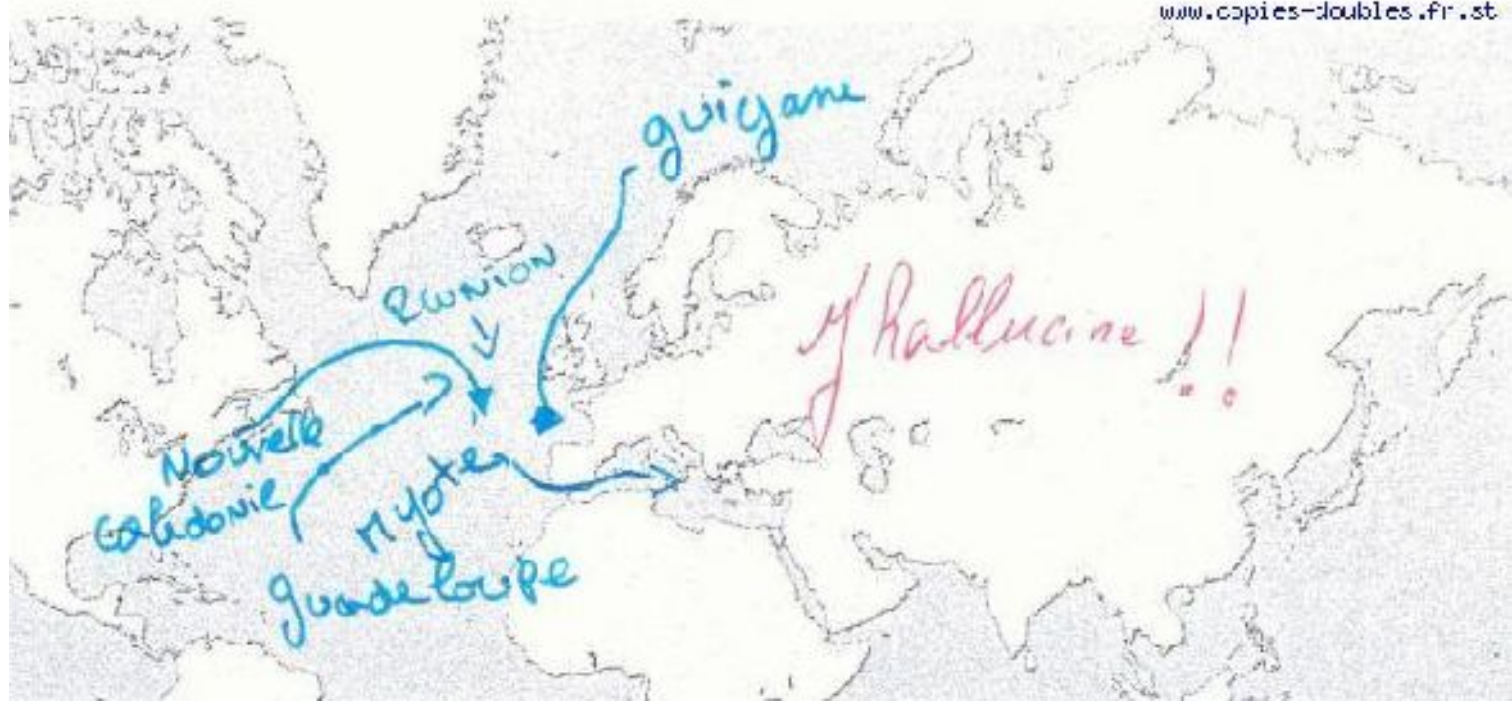 www.copies-doubles.fr.st
guigane
Réunion
J'hallucine !!
Nouvelle
Calédonie
Myote
guadeloupe